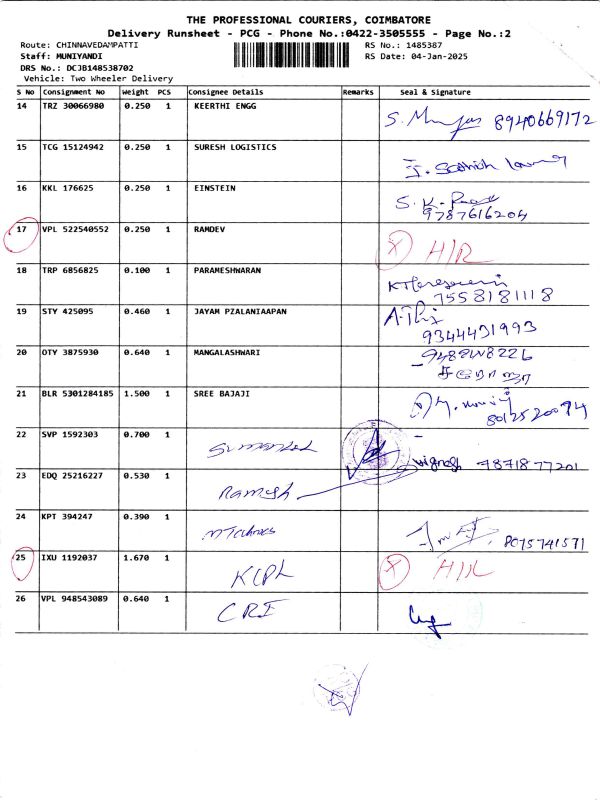 THE PROFESSIONAL COURIERS, COIMBATORE
Delivery Runsheet - PCG - Phone No.:0422-3505555 - Page No.:2
Route: CHINNAVEDAMPATTI RS No.: 1485387
Staff: MUNIYANDI RS Date: 04-Jan-2025
DRS No.: DCJB148538702
Vehicle: Two Wheeler Delivery
S No Consignment No Weight PCS Consignee Details Remarks Seal & Signature
14 TRZ 30066980 0.250 1 KEERTHI ENGG
8940669172
15 TCG 15124942 0.250 1 SURESH LOGISTICS
16 KKL 176625 0.250 1 EINSTEIN
S. K.
9787616204
17 VPL 522540552 0.250 1 RAMDEV X H/R
18 TRP 6856825 0.100 1 PARAMESHWARAN
7558181118
19 STY 425095 0.460 1 JAYAM PZALANIAAPAN
9344431993
20 OTY 3875930 0.640 1 MANGALASHWARI
21 BLR 5301284185 1.500 1 SREE BAJAJI
22 SVP 1592303 0.700 1
vignesh 7871877201
23 EDQ 25216227 0.530 1 Ramesh
24 KPT 394247 0.390 1
8075741571
25 IXU 1192037 1.670 1 KCPL X
26 VPL 948543089 0.640 1 CRI